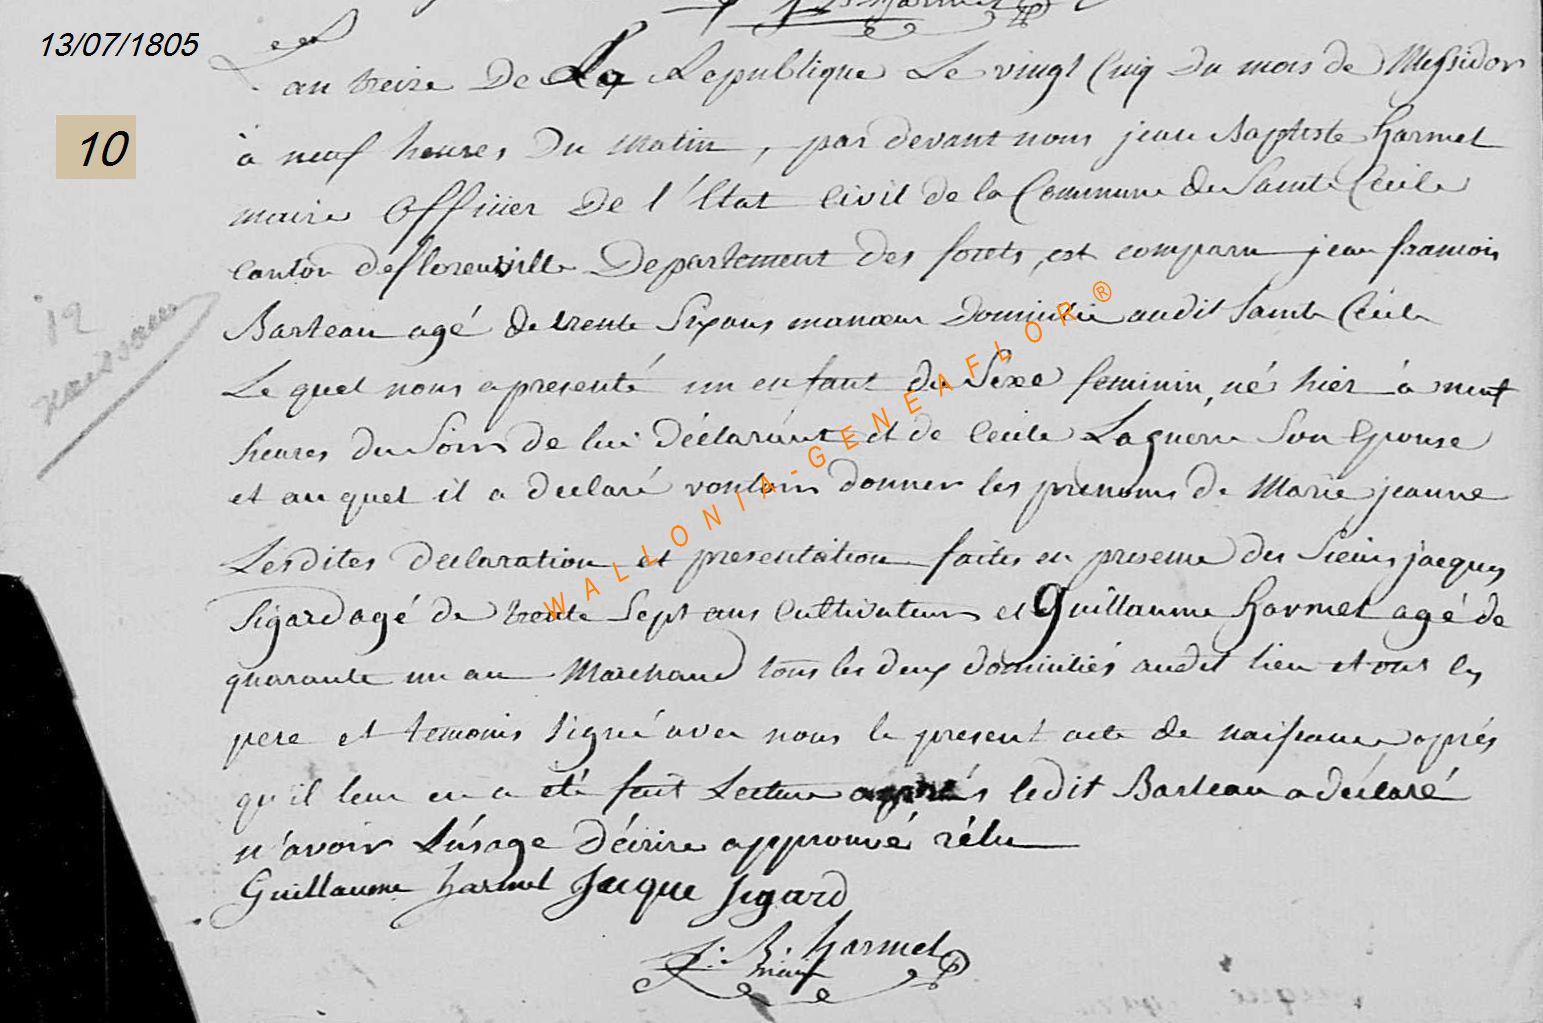 13/07/1805
L'an treize De La Republique Le vingt Cinq Du mois de Messidor
10
à neuf heures Du Matin, par devant nous jean Baptiste harmel
maire Officier De l'Etat Civil de la Commune de Sainte Cécile
canton de florenville Departement des forets, est comparu jean francois
Barteau agé de trente Six ans manoeuv Domicilié audit Sainte Cécile
12
naissance
Le quel nous a presenté un enfant du Sexe feminin, né hier à neuf
heures du Soir de lui déclarant et de Cécile Laguerre Son Epouse
et au quel il a declaré vouloir donner les prenoms de Marie jeanne
Lesdites declaration et presentation faites en presence des Sieurs jacques
Sigard agé de trente Sept ans Cultivateur et Guillaume harmel agé de
quarante un an Marchand tous les deux domiciliés audit lieu et ont les
pere et temoins Signé avec nous le present acte de naissance, après
qu'il leur en a été fait Lecture ledit Barteau a déclaré
n'avoir L'usage d'écrire approuvé rélu
Guillaume harmel Jacque Sigard
J. B. harmel
maire
WALLONIA-GENEAFLOR ®